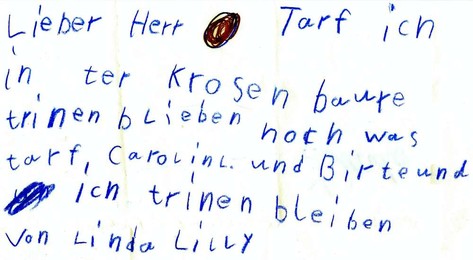 Lieber Herr Tarf ich
in ter Krosen baute
trinen blieben noch was
tarf, Carolinl. und Birte und
ich trinen bleiben
von Linda Lilly